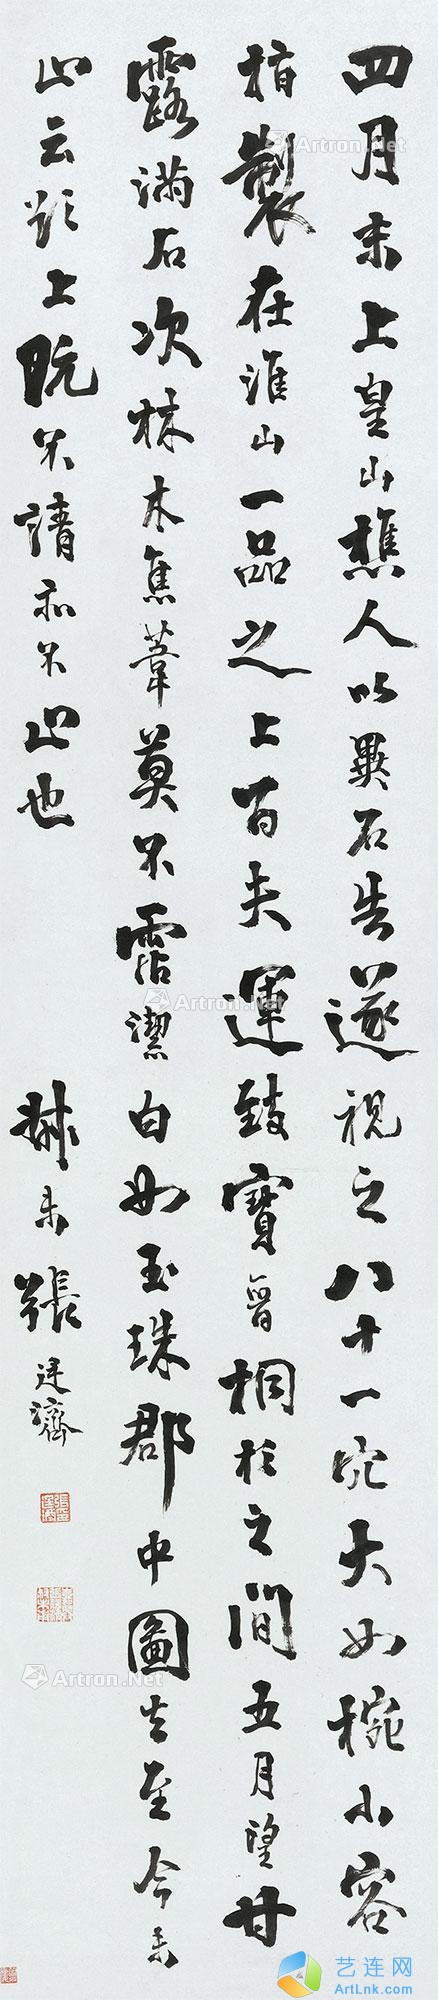 四月末上皇山樵人以異石告遂視之八十一穴大如椀小容
指製在淮山一品之上百夫運致寶晉桐杉之間五月望甘
露滿石次林木焦葦莫不霑潔白如玉珠郡中圖去至今未
止云欲上既不請亦不止也
叔未張廷濟
Artron.Net
Artron.Net
Artron.Net
Artron.Net
Artron.Net
Artron.Net
艺连网
ArtLnk.com